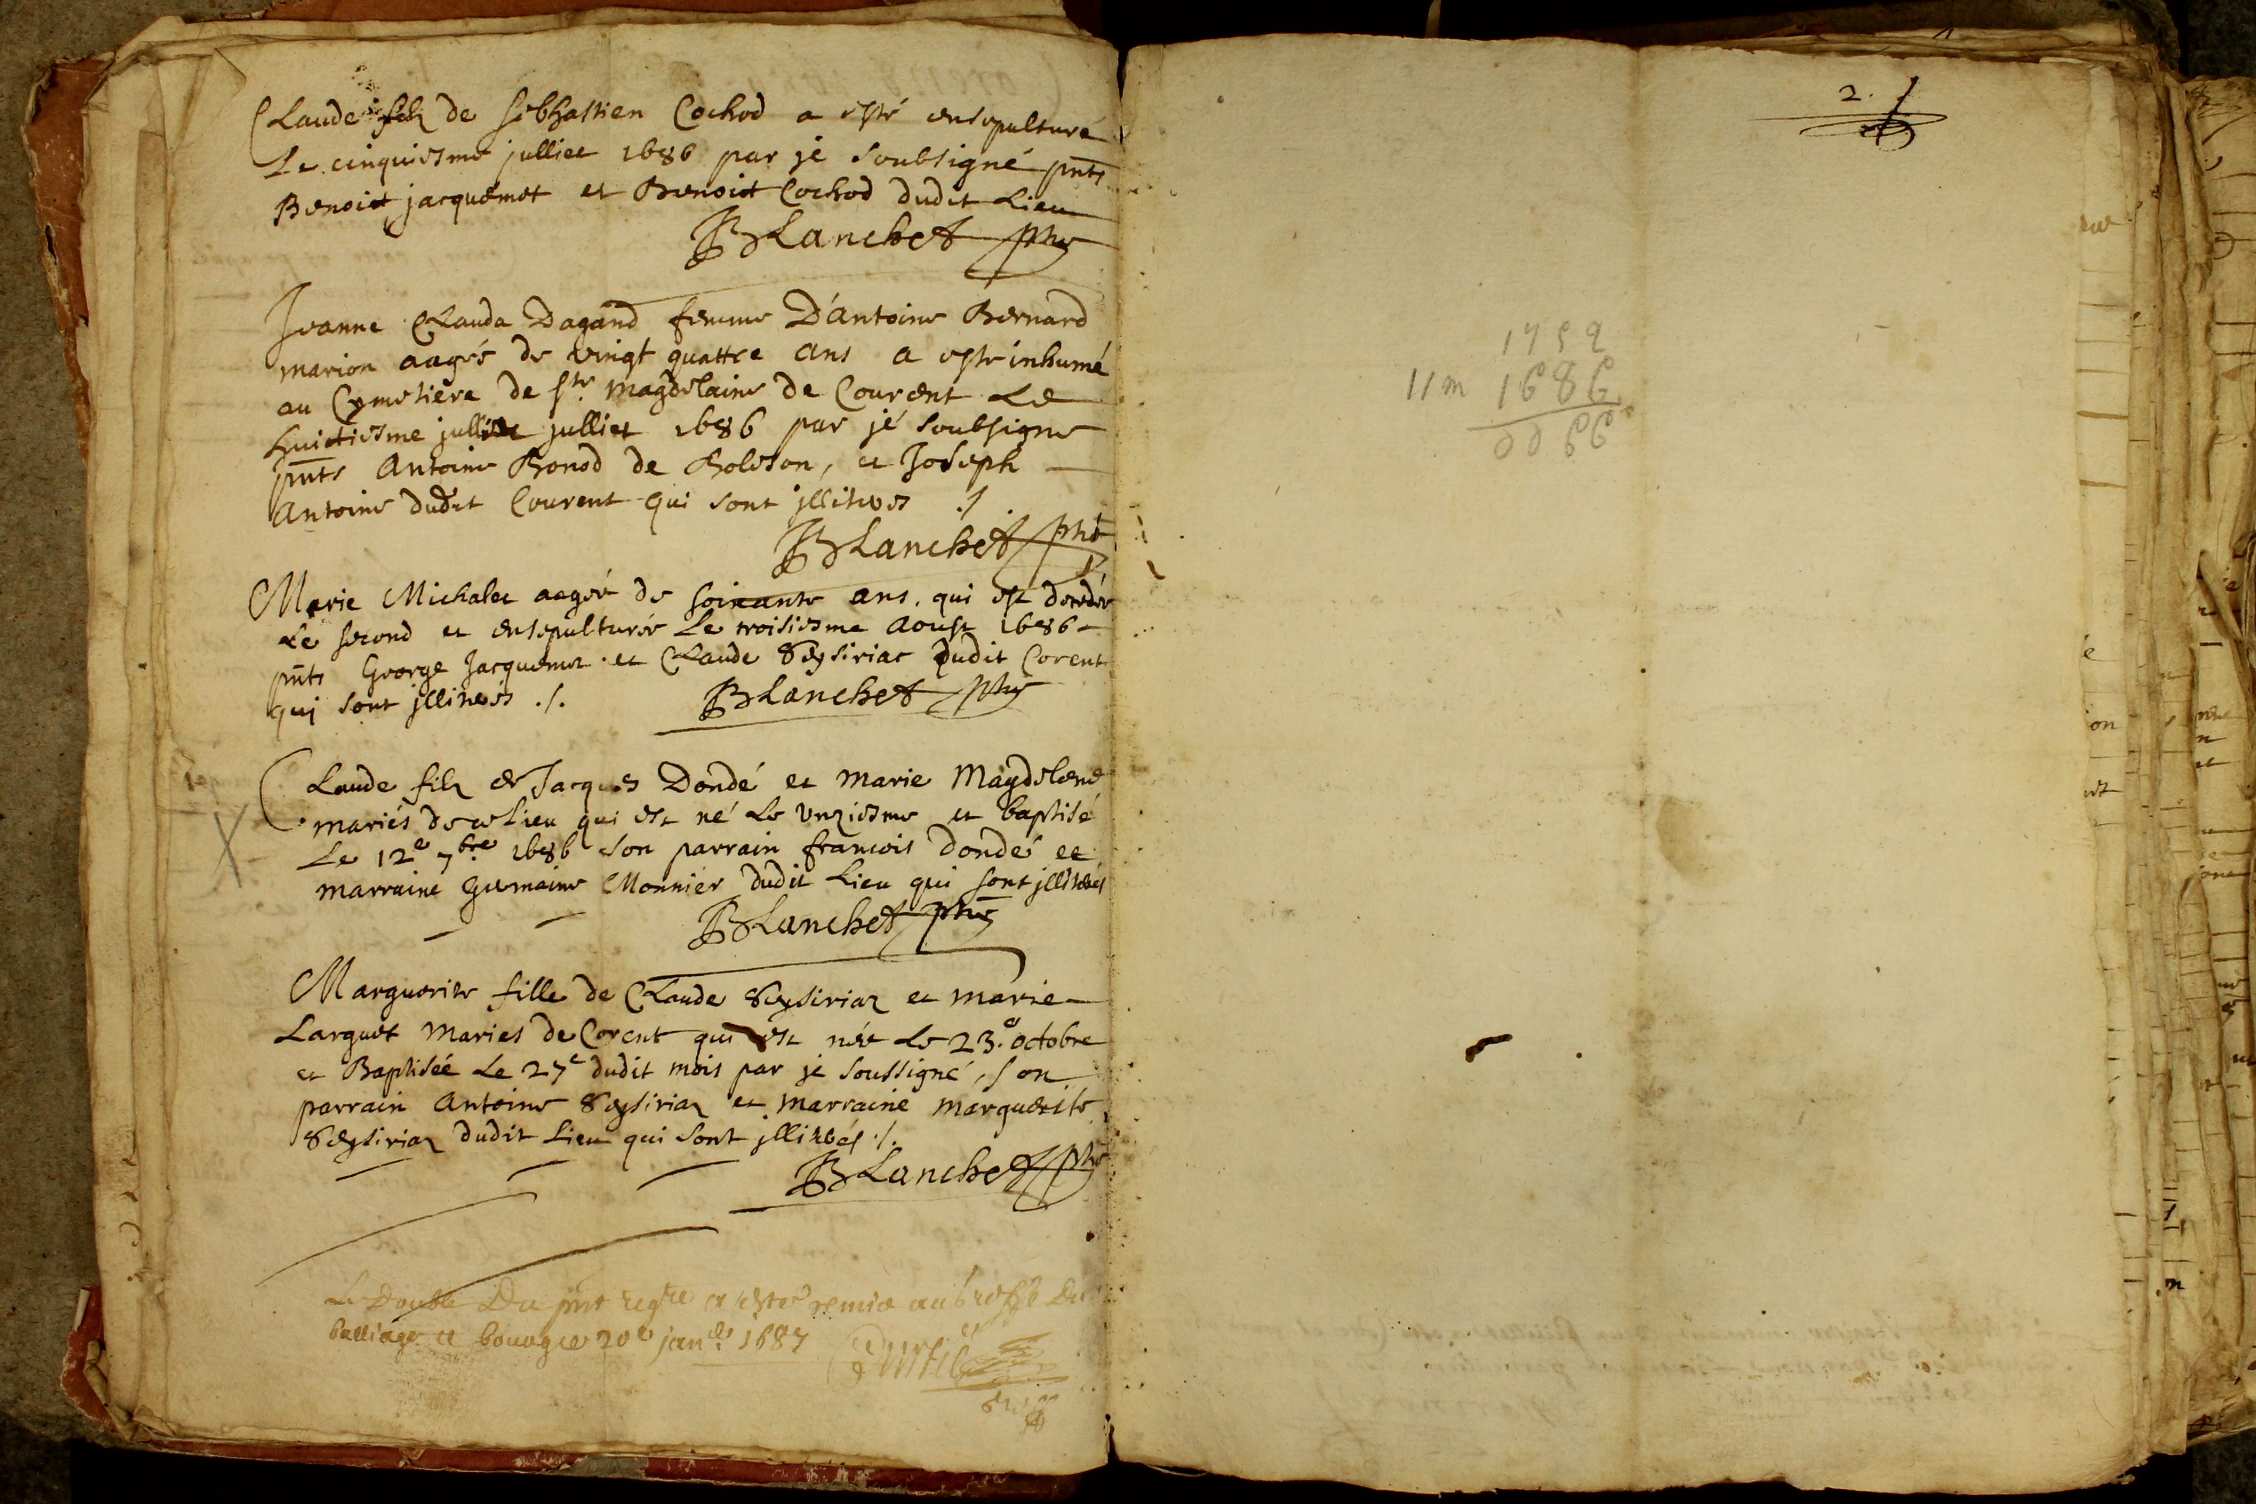 Claude filz de sebhastien Cochod a esté ensepulturé
Le cinquiesme julliet 1686 par je soubsigné pnts
Benoict jacquemet et Benoict Cochod dudit Lieu
BLanchet pbre
Jeanne CLauda Dagand femme D'antoine Bernard
marion aagée de vingt quattre ans a este inhumé
au Cymetière de ste. magdelaine de Courent Le
huictiesme julliet julliet 1686 par jé soubsigne
pnts Antoine Bonod de Boleson, et Joseph
Antoine dudit Courent qui sont jllitrés ./.
BLanchet pbre
Marie Michalet aagée de soixante ans. qui est decedée
Le second et ensepulturée Le troisiesme Aoust 1686
pnts George Jacquemet et CLaude Seysiriac dudit Corent
quj sont jllitrés ./.
BLanchet pbre
CLaude filz de Jacques Dondé et Marie Magdelene
mariés de ce Lieu qui est né Le unziesme et baptisé
Le 12e 7bre 1686 son parrain francois dondé et
marraine Germaine Monnier dudit Lieu qui sont jllitrés
BLanchet pbre
Marguerite fille de CLaude Seysiriaz et marie
Larguet Mariés de Corent qui est née Le 23.e octobre
et Baptisée Le 27e dudit mois par je soussigné, son
parrain Antoine Seysiriaz et marraine marguerite
Seysiriaz dudit Lieu qui sont jllitrés ./.
BLanchet pbre
Le Double Du pnt regre a esté remis au Greffe du
balliage a bourg ce 20e janer 1687
2.
1752
11m 1686
0066